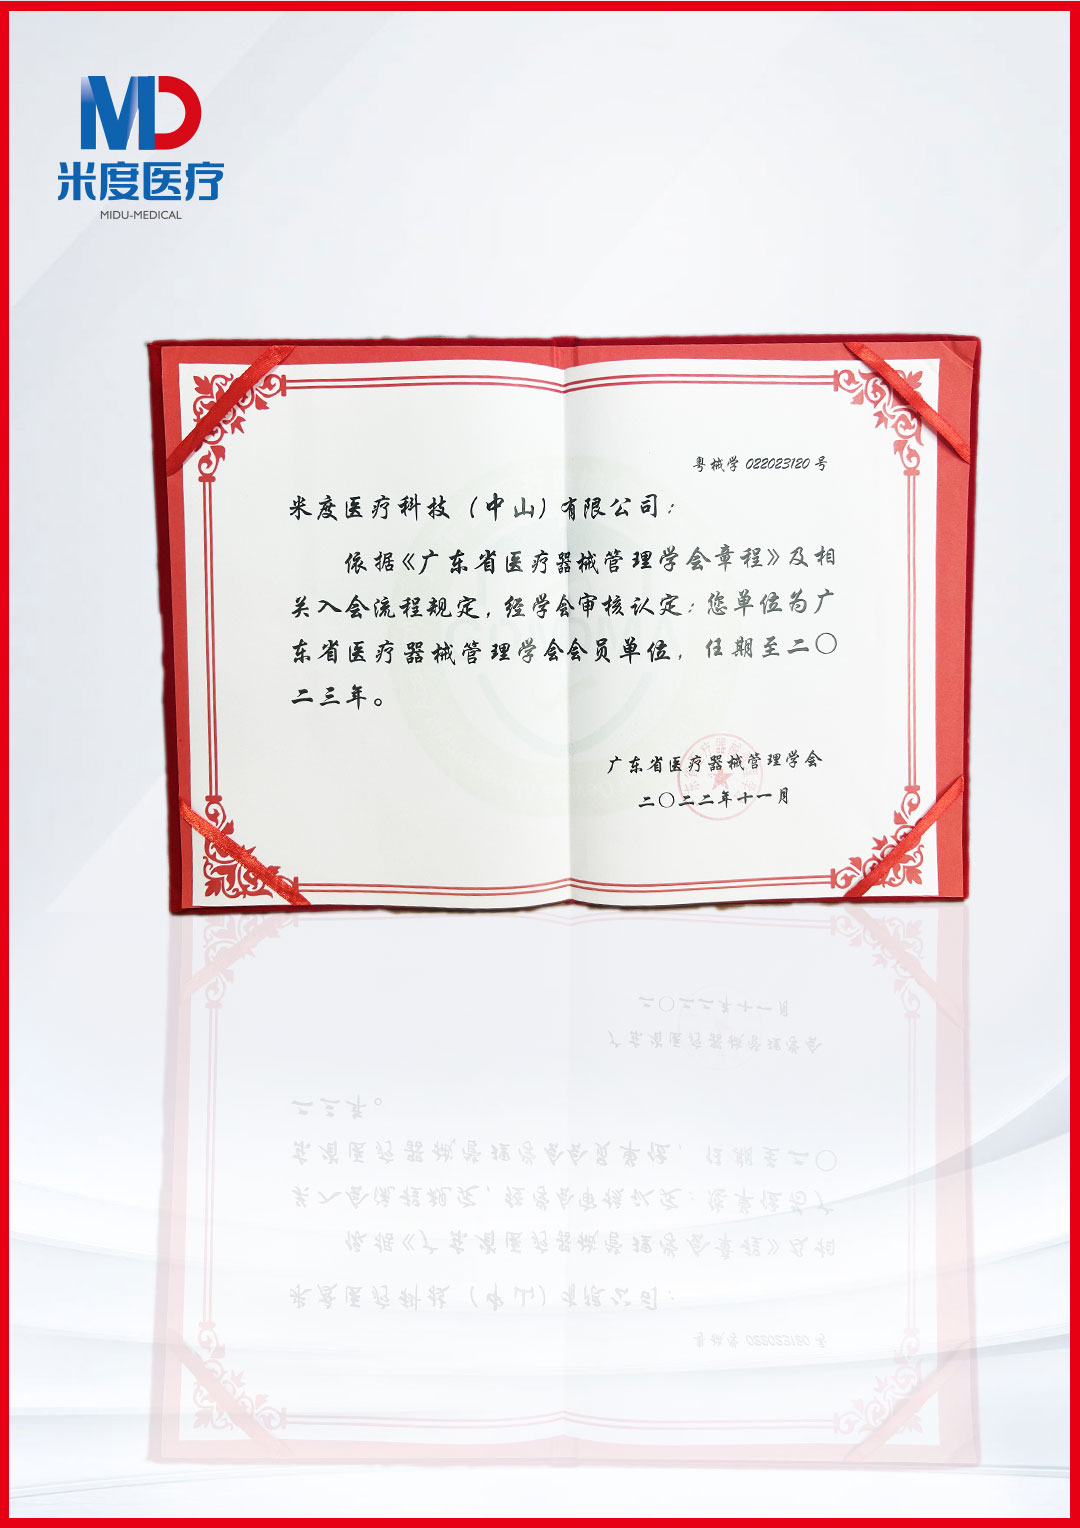 MD
米度医疗
MIDU-MEDICAL
粤械学 022023120 号
米度医疗科技（中山）有限公司：
依据《广东省医疗器械管理学会章程》及相
关入会流程规定，经学会审核认定：您单位为广
东省医疗器械管理学会会员单位，任期至二〇
二三年。
广东省医疗器械管理学会
二〇二二年十一月